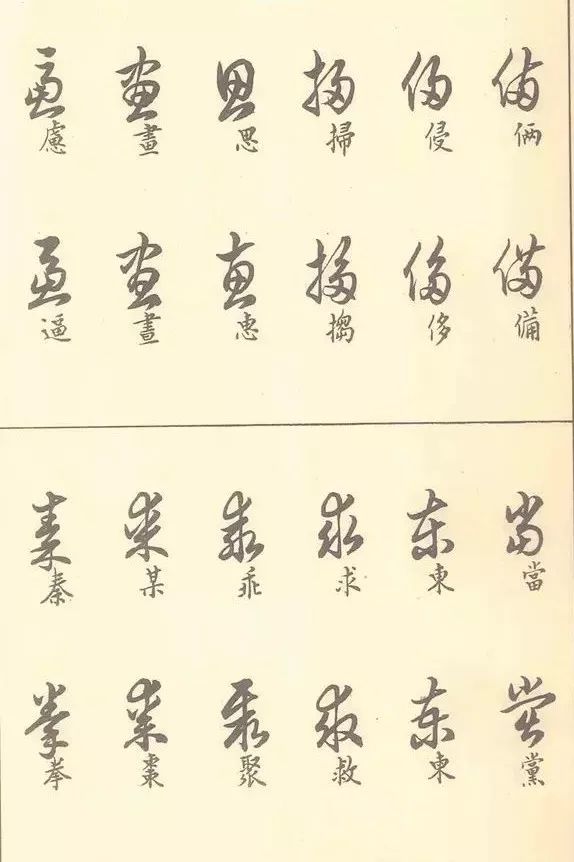 倆 侵 掃 思 畫 慮
備 侈 搊 惠 晝 逼
當 東 求 乖 某 秦
黨 柬 救 聚 棗 拳